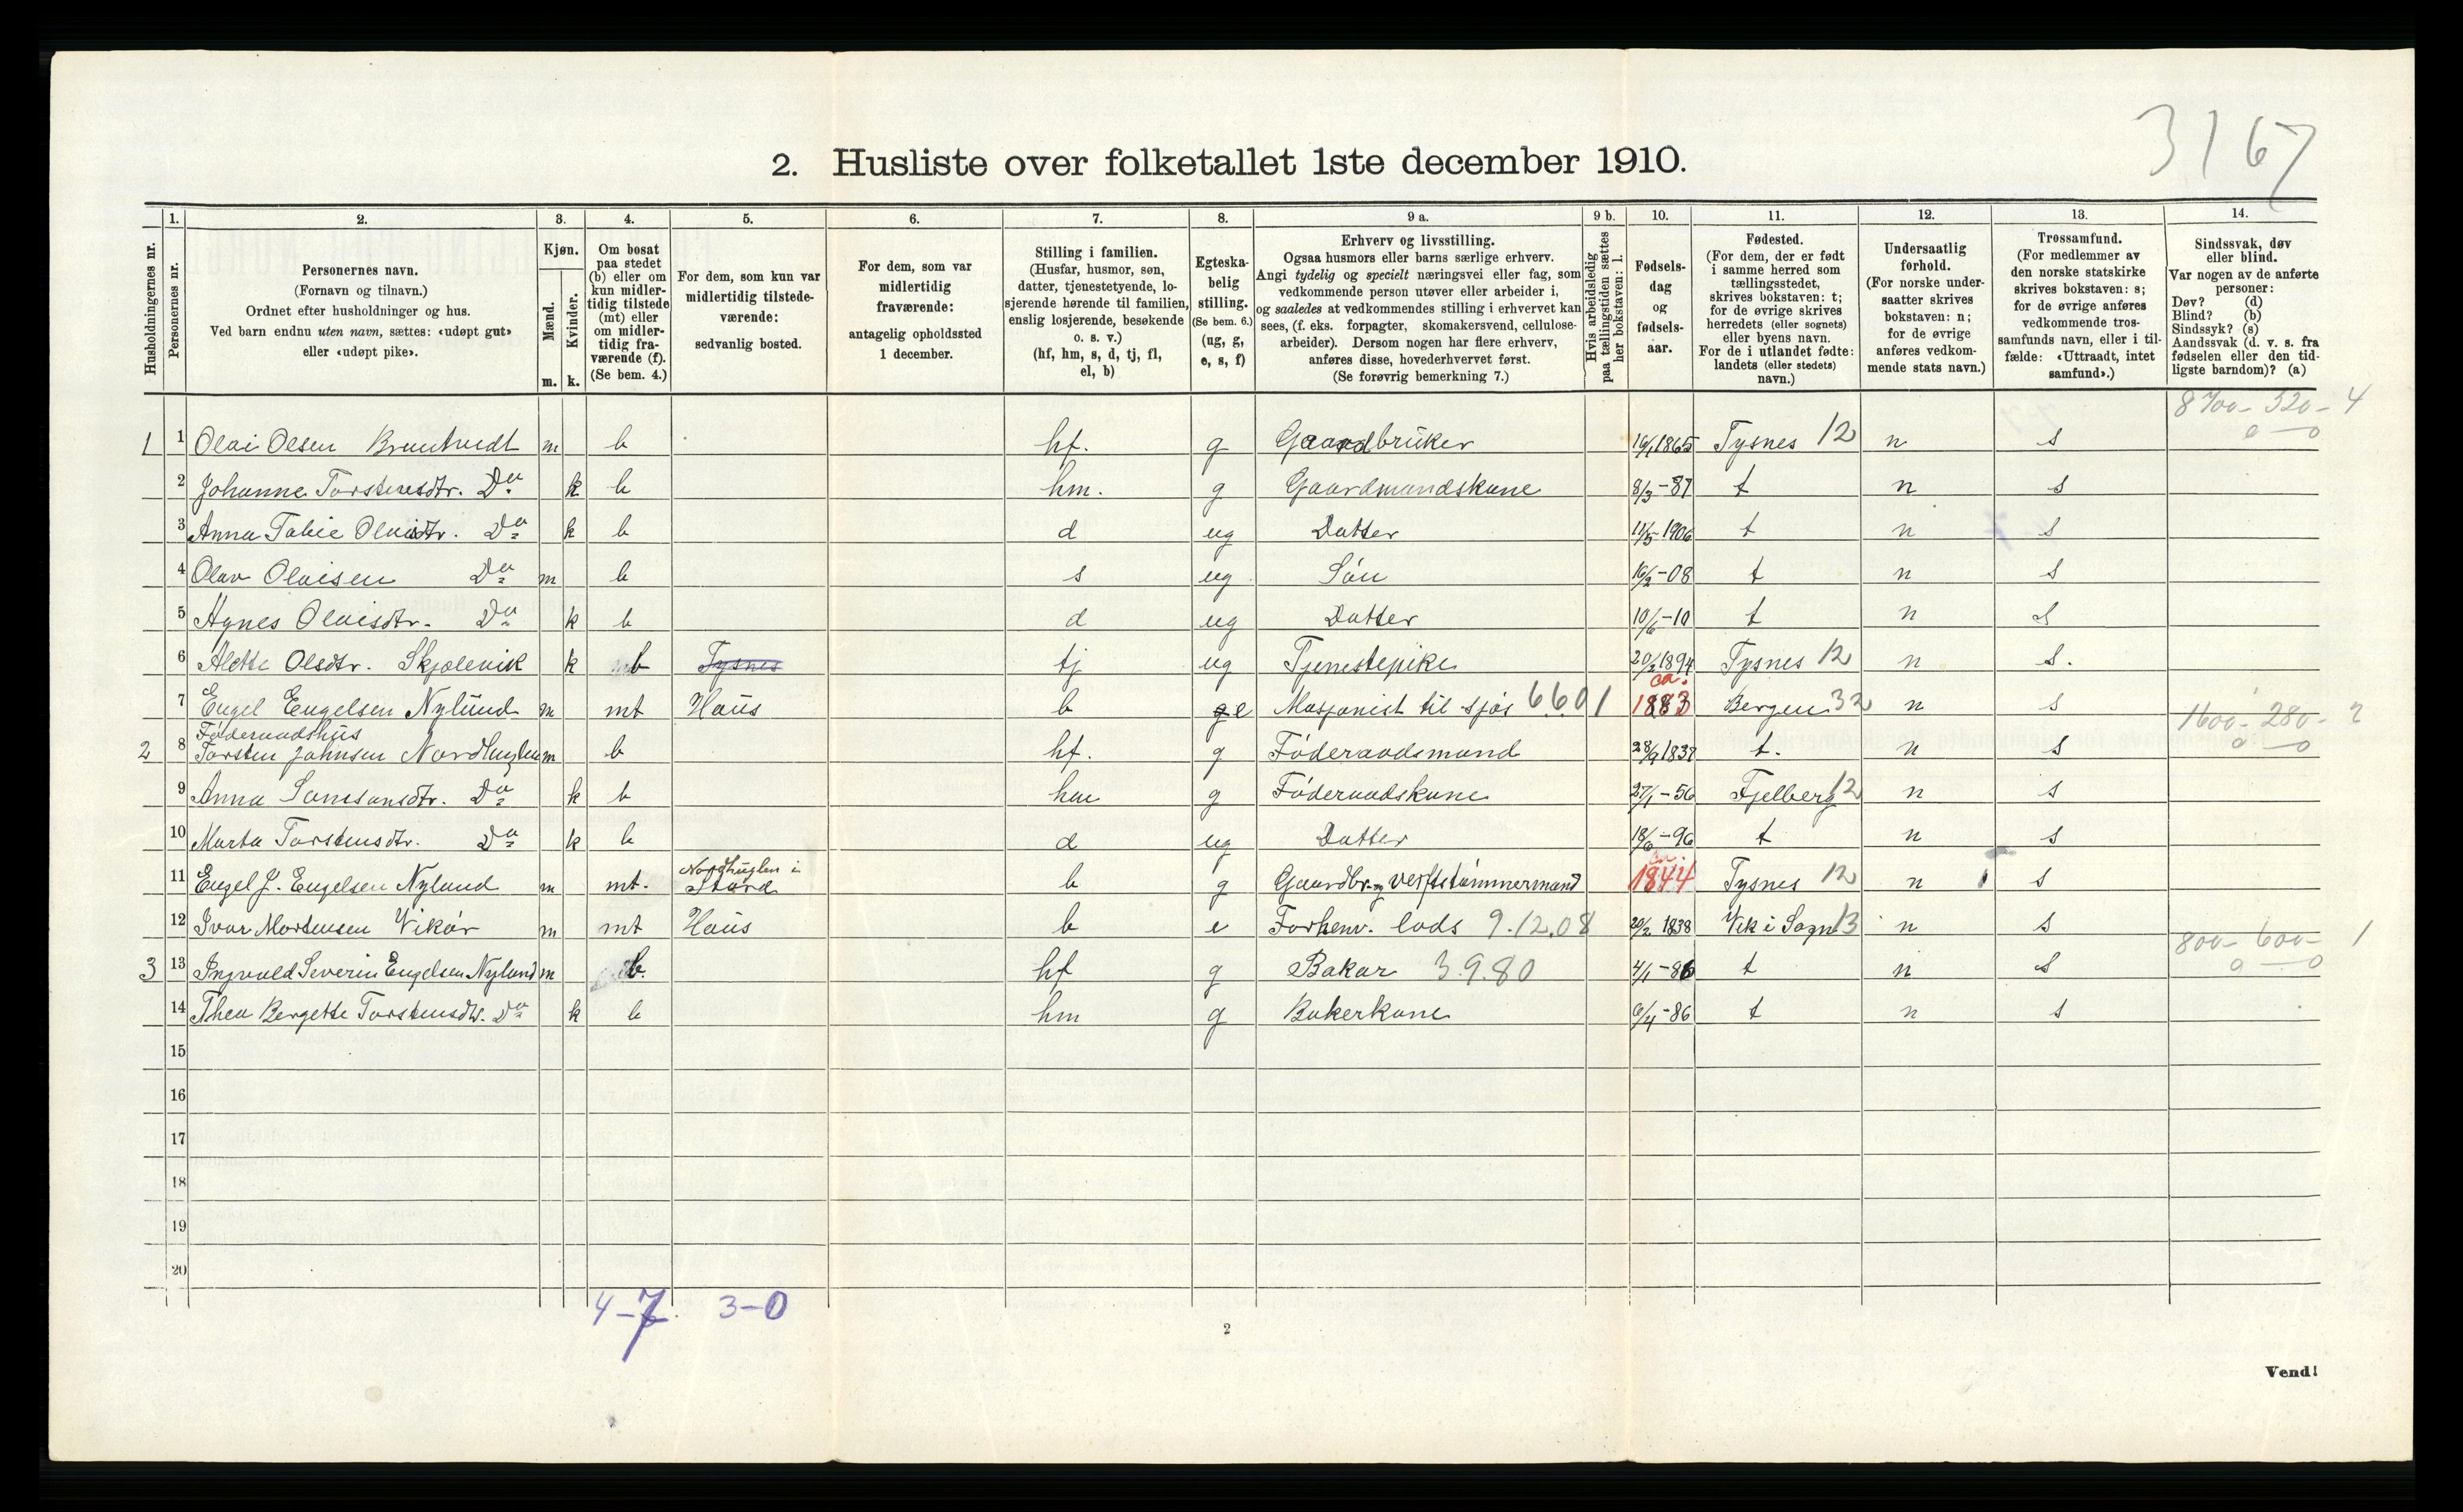 3167
2. Husliste over folketallet 1ste december 1910.
1. 2. 3. 4. 5. 6. 7. 8. 9 a. 9 b. 10. 11. 12. 13. 14.
Husholdningernes nr.
Personernes nr.
Personernes navn.
(Fornavn og tilnavn.)
Ordnet efter husholdninger og hus.
Ved barn endnu uten navn, sættes: «udøpt gut»
eller «udøpt pike».
Kjøn.
Mænd.
Kvinder.
m. k.
Om bosat
paa stedet
(b) eller om
kun midler-
tidig tilstede
(mt) eller
om midler-
tidig fra-
værende (f).
(Se bem. 4.)
For dem, som kun var
midlertidig tilstede-
værende:
sedvanlig bosted.
For dem, som var
midlertidig
fraværende:
antagelig opholdssted
1 december.
Stilling i familien.
(Husfar, husmor, søn,
datter, tjenestetyende, lo-
sjerende hørende til familien,
enslig losjerende, besøkende
o. s. v.)
(hf, hm, s, d, tj, fl,
el, b)
Egteska-
belig
stilling.
(Se bem. 6.)
(ug, g,
e, s, f)
Erhverv og livsstilling.
Ogsaa husmors eller barns særlige erhverv.
Angi tydelig og specielt næringsvei eller fag, som
vedkommende person utøver eller arbeider i,
og saaledes at vedkommendes stilling i erhvervet kan
sees, (f. eks. forpagter, skomakersvend, cellulose-
arbeider). Dersom nogen har flere erhverv,
anføres disse, hovederhvervet først.
(Se forøvrig bemerkning 7.)
Hvis arbeidsledig
paa tællingstiden sættes
her bokstaven: l.
Fødsels-
dag
og
fødsels-
aar.
Fødested.
(For dem, der er født
i samme herred som
tællingsstedet,
skrives bokstaven: t;
for de øvrige skrives
herredets (eller sognets)
eller byens navn.
For de i utlandet fødte:
landets (eller stedets)
navn.)
Undersaatlig
forhold.
(For norske under-
saatter skrives
bokstaven: n;
for de øvrige
anføres vedkom-
mende stats navn.)
Trossamfund.
(For medlemmer av
den norske statskirke
skrives bokstaven: s;
for de øvrige anføres
vedkommende tros-
samfunds navn, eller i til-
fælde: «Uttraadt, intet
samfund».)
Sindssvak, døv
eller blind.
Var nogen av de anførte
personer:
Døv? (d)
Blind? (b)
Sindssyk? (s)
Aandssvak (d. v. s. fra
fødselen eller den tid-
ligste barndom)? (a)
8700 - 320 - 4
0 - 0
1 1 Olai Olsen m b hf. g Gaardbruker 16/1 1865 Tysnes 12 n s
2 Johanne Torstensdtr. Do k b hm. g Gaardmandskone 8/3 -87 t n s
3 Anna Tobie Olaisdtr. Do k b d ug Datter 11/5 1906 t n s
4 Olav Olaisen Do m b s ug Søn 16/2 -08 t n s
5 Agnes Olaisdtr. Do k b d ug Datter 10/6 -10 t n s
6 Alette Olsdtr. Skjolevik k b Tysnes tj ug Tjenestepike 20/3 1894 Tysnes 12 n s.
7 Engel Engelsen Nylund m mt Haus b e Masjonist til sjøs 6601 ca. 1883 Bergen 32 n s
1600 - 280 - 2
0 - 0
Føderaadshus
2 8 Torsten Johnsen Nordhuglen m b hf. g Føderaadsmand 28/9 1837 t. n s
9 Anna Samsonsdtr. Do k b hm g Føderaadskone 27/1 -56 Fjelberg 12 n s
10 Marta Torstensdtr. Do k b d ug Datter 18/6 -96 t n s
Nordhuglen i
11 Engel J. Engelsen Nylund m mt. Stord b g Gaardbr. og verftstømmermand ca. 1844 Tysnes 12 n s
12 Ivar Mortensen Vikør m mt Haus b e Forhenv. lods 9.12.08 20/2 1838 Vik i Sogn 13 n s
800 - 600 - 1
0 - 0
3 13 Ingvald Severin Engelsen Nylund m b. hf g Bakar 3.9.80 4/1 -86 t n s
14 Thea Bergette Torstensdtr. Do k b hm g Bakerkone 6/4 -86 t n s
15
16
17
18
19
20
4-7. 3-0
2
Vend!